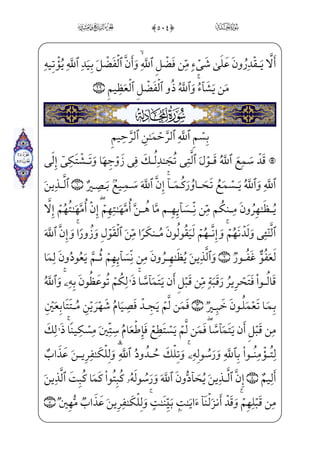 أَلَّا يَقْدِرُونَ عَلَىٰ شَىْءٍ مِّن فَضْلِ ٱللَّهِ ۙ وَأَنَّ ٱلْفَضْلَ بِيَدِ ٱللَّهِ يُؤْتِيهِ
مَن يَشَآءُ ۚ وَٱللَّهُ ذُو ٱلْفَضْلِ ٱلْعَظِيمِ ٢٩
سُورَةُ المُجَادلَةِ
بِسْمِ ٱللَّهِ ٱلرَّحْمَـٰنِ ٱلرَّحِيمِ
۞ قَدْ سَمِعَ ٱللَّهُ قَوْلَ ٱلَّتِى تُجَـٰدِلُكَ فِى زَوْجِهَا وَتَشْتَكِىٓ إِلَى
ٱللَّهِ وَٱللَّهُ يَسْمَعُ تَحَاوُرَكُمَآ ۚ إِنَّ ٱللَّهَ سَمِيعٌۢ بَصِيرٌ ١ ٱلَّذِينَ
يُظَـٰهِرُونَ مِنكُم مِّن نِّسَآئِهِم مَّا هُنَّ أُمَّهَـٰتِهِمْ ۖ إِنْ أُمَّهَـٰتُهُمْ إِلَّا
ٱلَّـٰٓـِٔى وَلَدْنَهُمْ ۚ وَإِنَّهُمْ لَيَقُولُونَ مُنكَرًا مِّنَ ٱلْقَوْلِ وَزُورًا ۚ وَإِنَّ ٱللَّهَ
لَعَفُوٌّ غَفُورٌ ٢ وَٱلَّذِينَ يُظَـٰهِرُونَ مِن نِّسَآئِهِمْ ثُمَّ يَعُودُونَ لِمَا
قَالُوا۟ فَتَحْرِيرُ رَقَبَةٍ مِّن قَبْلِ أَن يَتَمَآسَّا ۚ ذَٰلِكُمْ تُوعَظُونَ بِهِۦ ۚ وَٱللَّهُ
بِمَا تَعْمَلُونَ خَبِيرٌ ٣ فَمَن لَّمْ يَجِدْ فَصِيَامُ شَهْرَيْنِ مُتَتَابِعَيْنِ
مِن قَبْلِ أَن يَتَمَآسَّا ۖ فَمَن لَّمْ يَسْتَطِعْ فَإِطْعَامُ سِتِّينَ مِسْكِينًا ۚ ذَٰلِكَ
لِتُؤْمِنُوا۟ بِٱللَّهِ وَرَسُولِهِۦ ۚ وَتِلْكَ حُدُودُ ٱللَّهِ ۗ وَلِلْكَـٰفِرِينَ عَذَابٌ
أَلِيمٌ ٤ إِنَّ ٱلَّذِينَ يُحَآدُّونَ ٱللَّهَ وَرَسُولَهُۥ كُبِتُوا۟ كَمَا كُبِتَ ٱلَّذِينَ
مِن قَبْلِهِمْ ۚ وَقَدْ أَنزَلْنَآ ءَايَـٰتٍۭ بَيِّنَـٰتٍ ۚ وَلِلْكَـٰفِرِينَ عَذَابٌ مُّهِينٌ ٥